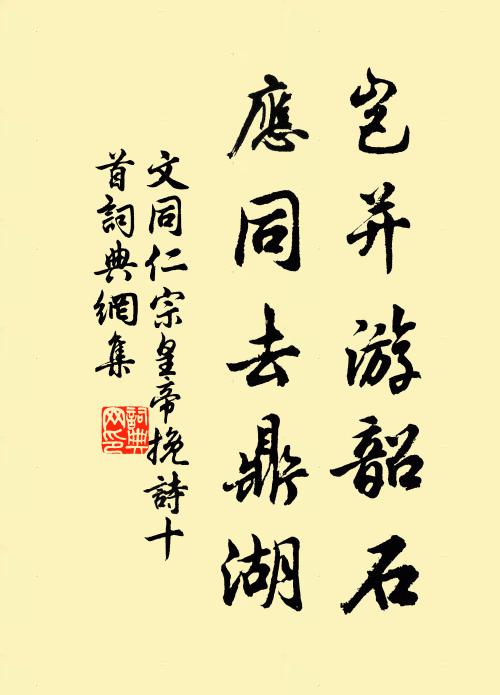 岂并游韶石
應同去鼎湖
文同仁宗皇帝挽詩十
首詞典網集
詞典
网印